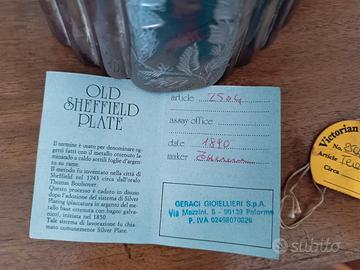 OLD
SHEFFIELD
PLATE
Il termine è usato per denominare og-
getti fatti con il metallo ottenuto la-
minando a caldo sottili foglie d'argen-
to su rame.
Il metodo fu inventato nella città di
Sheffield nel 1743 circa dall'orafo
Thomas Boulsover.
Questo processo è caduto in disuso
dopo l'adozione del sistema di Silver
Plating (placcatura in argento del me-
tallo base ottenuta con bagno galva-
nico), iniziata nel 1830.
Tale sistema di lavorazione fu chia-
mato comunemente Silver Plate.
article
assay office
date 1890
maker
GERACI GIOIELLIERI S.p.A.
Via Mazzini, 5 - 90139 Palermo
P. IVA 02498070826
Victorian
No.
Article
Circa
subito